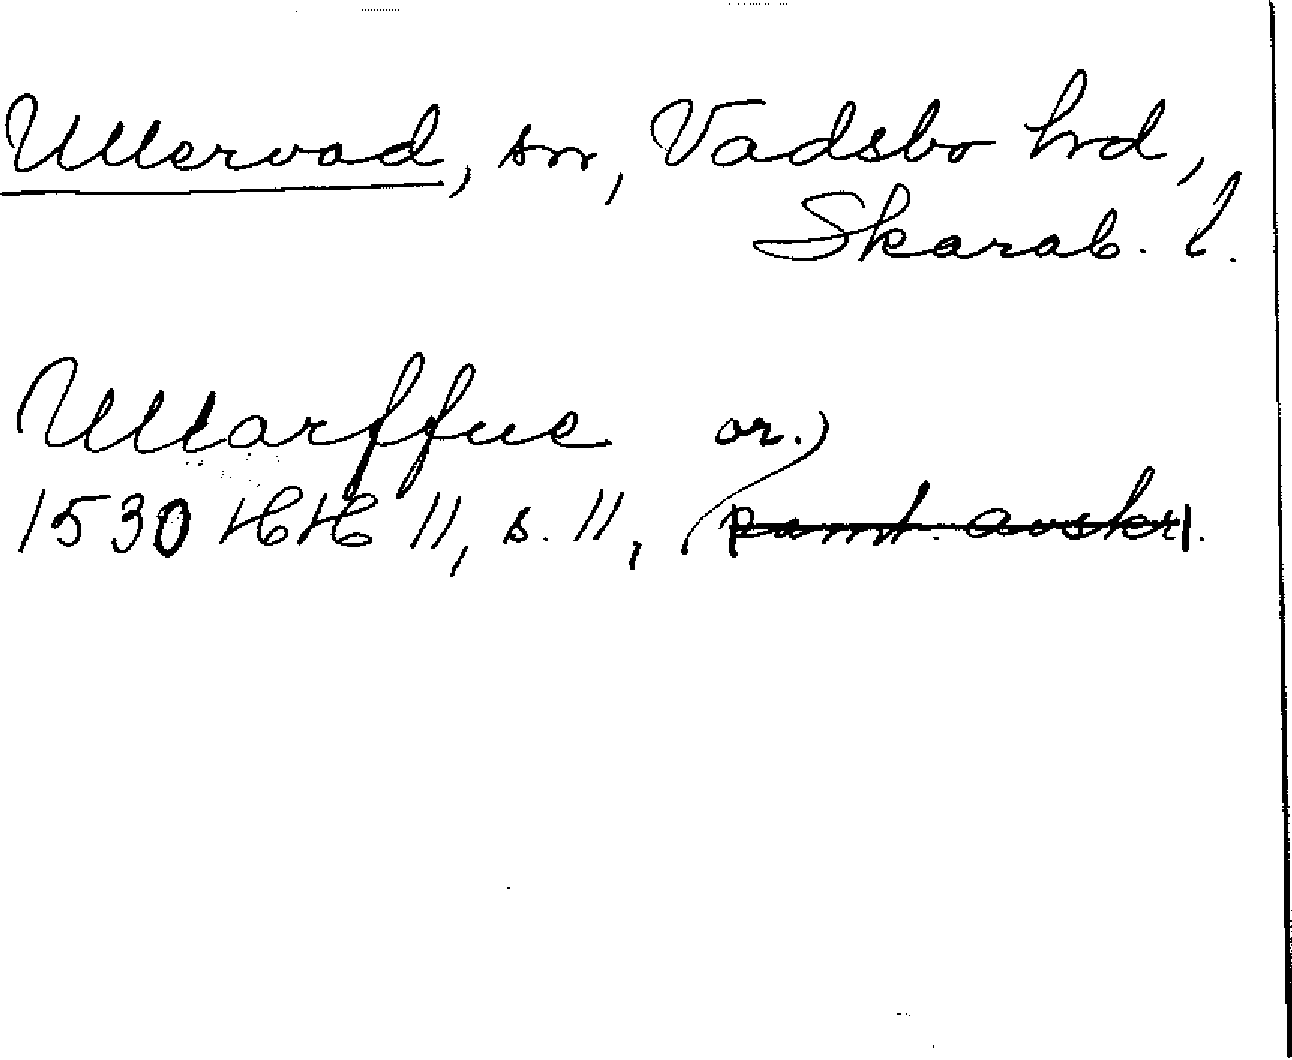 Ullervad, sn, Vadsbo hd,
Skarab. l.
Ullarffue or.
1530 HH 11, s. 11, samt. avskr.